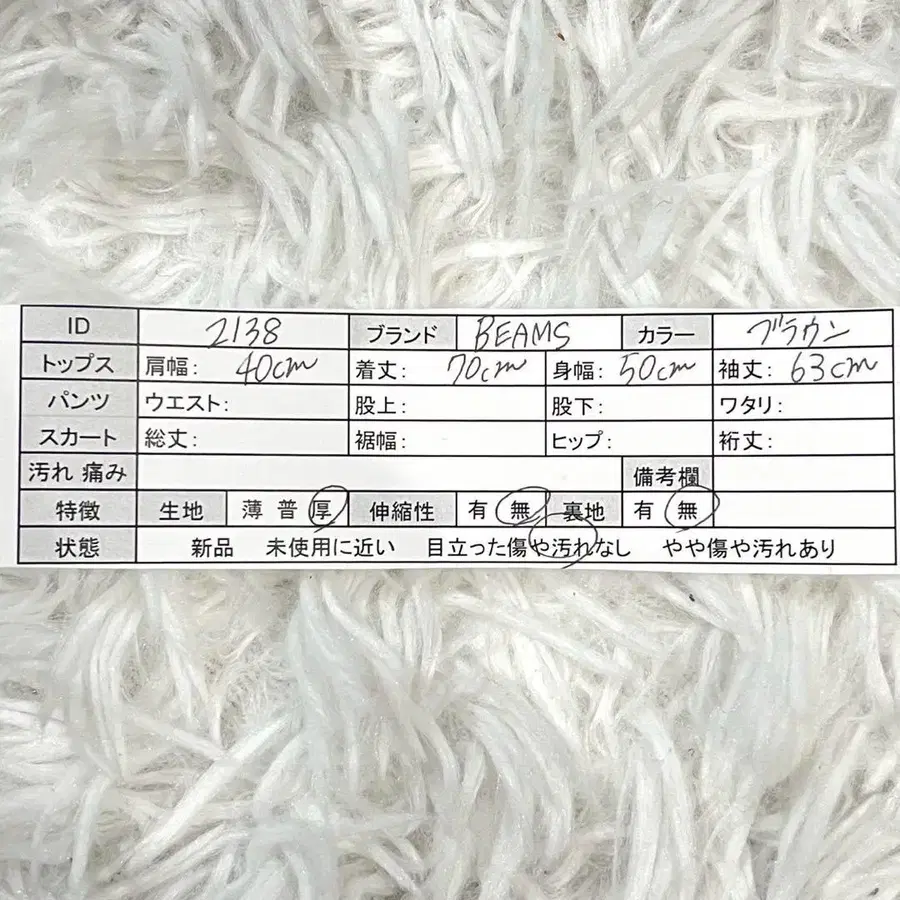 ID 2138 ブランド BEAMS カラー ブラウン
トップス 肩幅: 40cm 着丈: 70cm 身幅: 50cm 袖丈: 63cm
パンツ ウエスト: 股上: 股下: ワタリ:
スカート 総丈: 裾幅: ヒップ: 裄丈:
汚れ 痛み 備考欄
特徴 生地 薄 普 厚 伸縮性 有 無 裏地 有 無
状態 新品 未使用に近い 目立った傷や汚れなし やや傷や汚れあり